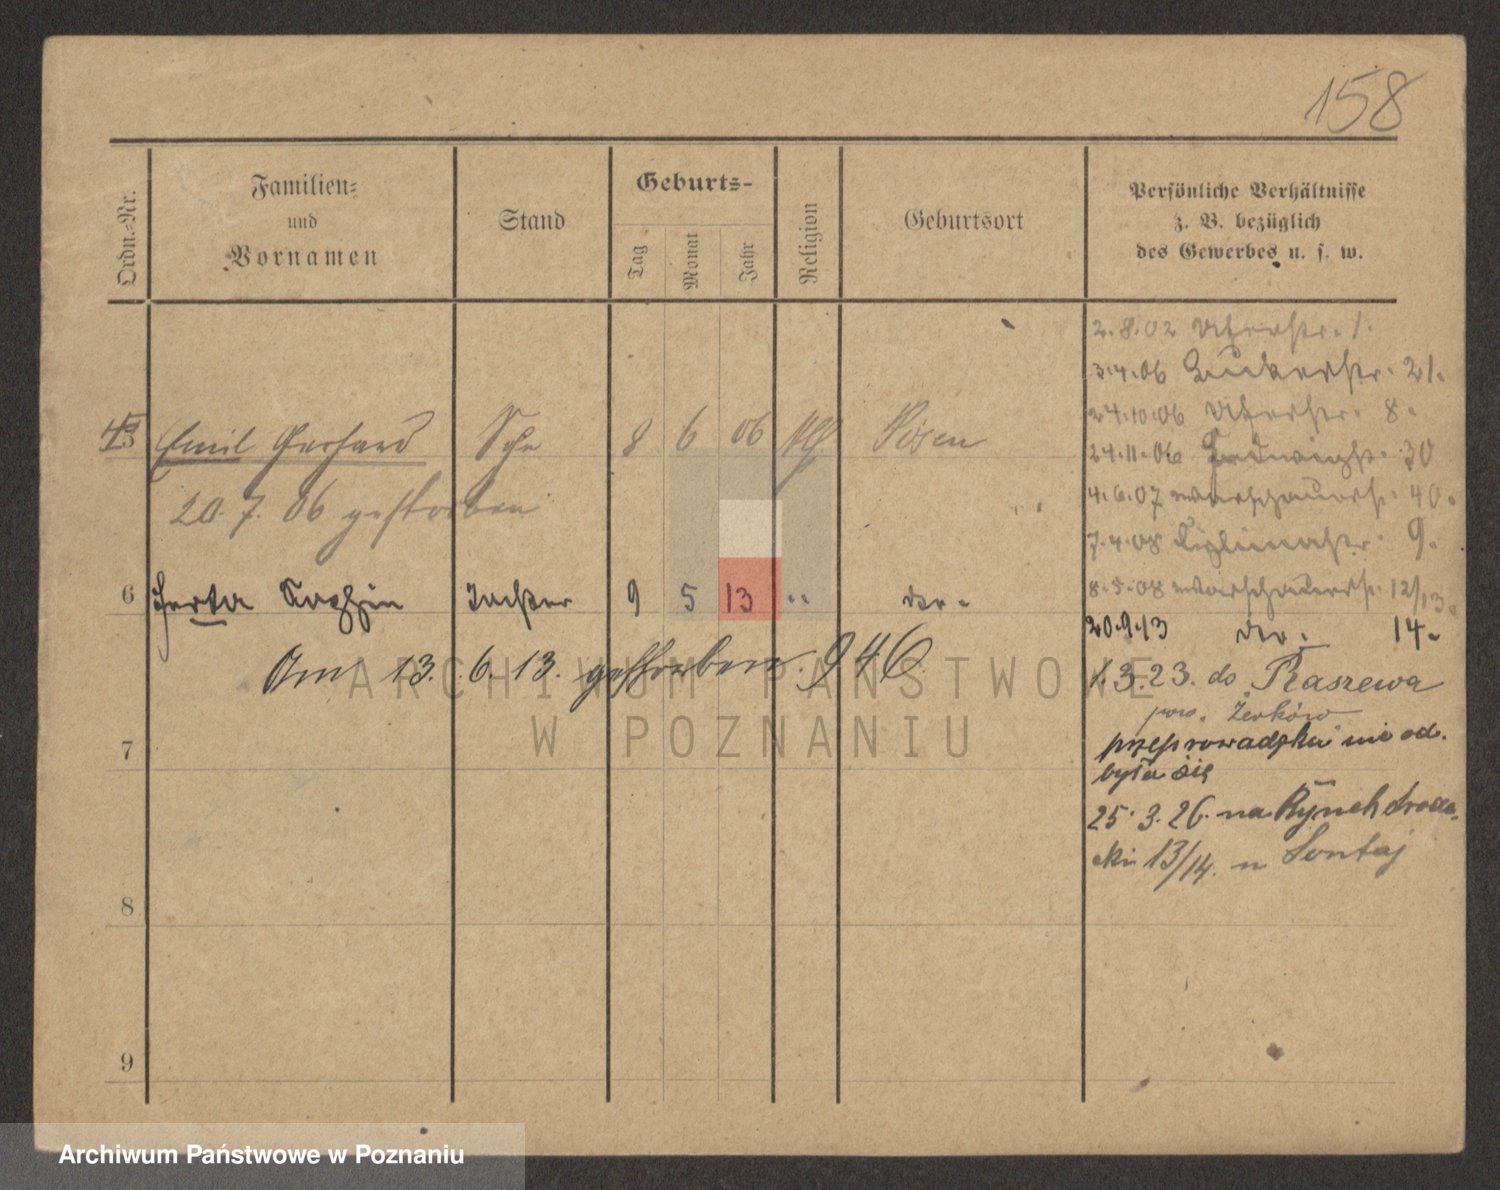 158
Ordn.-Nr.
Familien-
und
Vornamen
Stand
Geburts-
Tag
Monat
Jahr
Religion
Geburtsort
Persönliche Verhältnisse
z. B. bezüglich
des Gewerbes u. s. w.
2.8.02 Uferstr. 1.
3.4.06 Bukerstr. 21.
24.10.06 Uferstr. 8.
5 Emil Gerhard 8 6 06 Posen
24.11.06 30
20.7.06 gestorben
4.6.07 Warschauerstr. 40.
7.4.08 9.
8.5.08 Warschauerstr. 12/13.
6 Herta Tochter 9 5 13 " do.
20.9.13 do. 14.
Am 13.6.13. gestorben. 946
1.3.23. do Raszewa
pow. Żerków
7
przeprowadzka nie od-
była się
25.3.26. na Rynek Srode-
cki 13/14. u Sontaj
8
9
ARCHIWUM PAŃSTWOWE
W POZNANIU
Archiwum Państwowe w Poznaniu